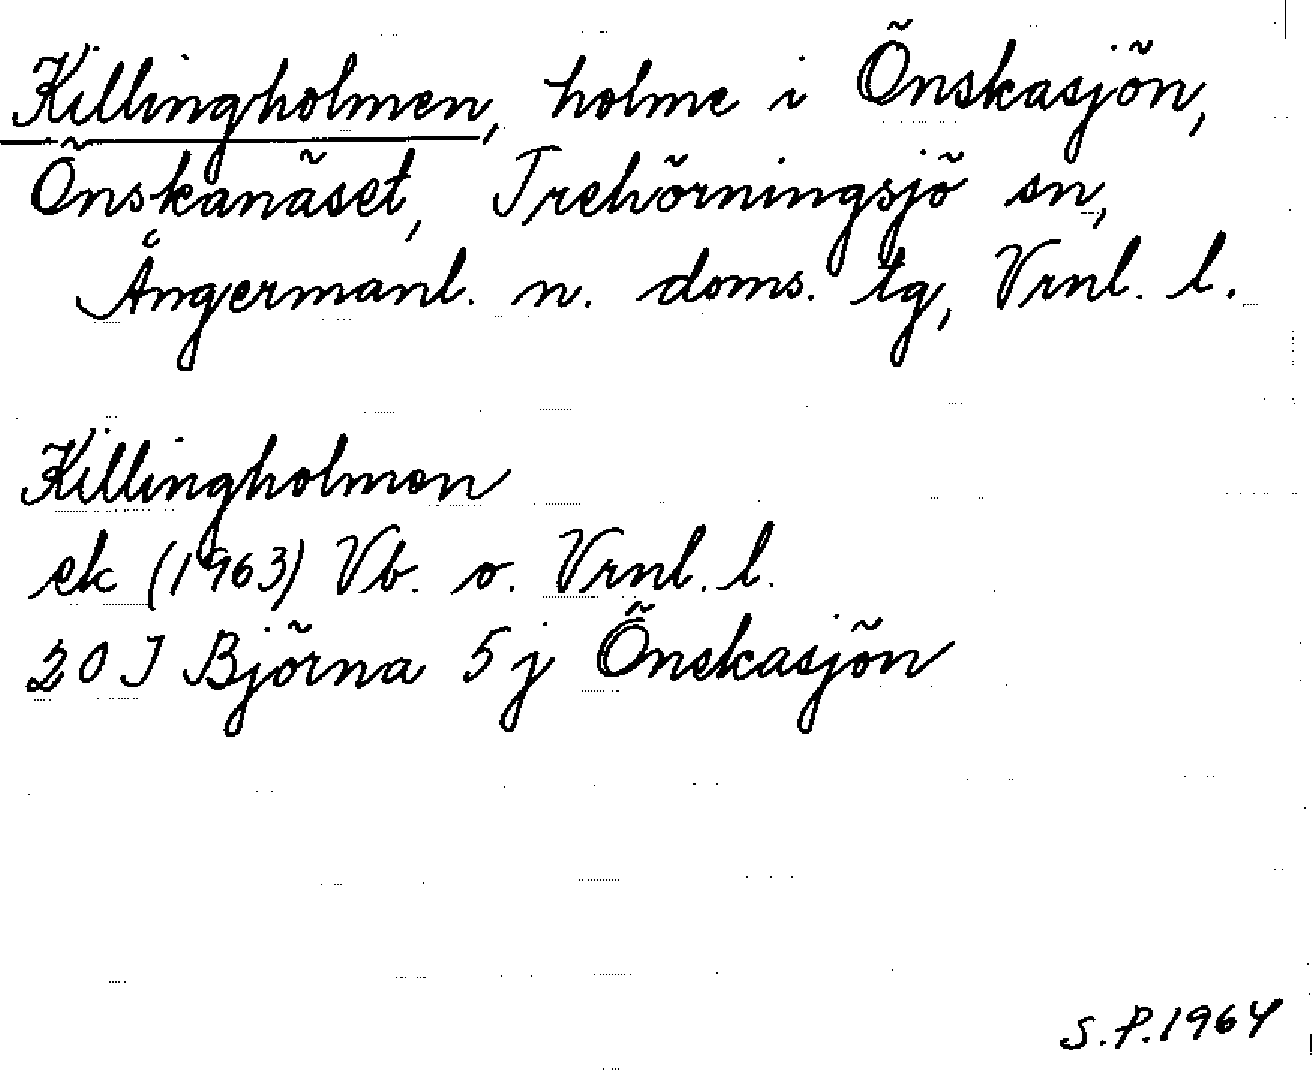 Killingholmen, holme i Önskasjön,
Önskanäset, Trehörningsjö sn,
Ångermanl. n. doms. tg, Vrnl. l.
Killingholmen
ek (1963) Vb. o. Vrnl. l.
20 J Björna 5 j Önskasjön
S.P.1964